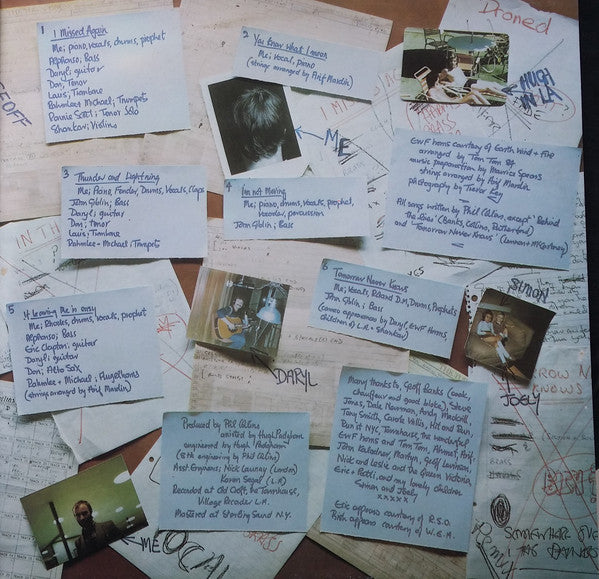 1 I Missed Again
Me; piano, vocals, drums, prophet
Alphonso; Bass
Daryl; guitar
Don; Tenor
Louis; Trombone
Rahmlee + Michael; Trumpets
Ronnie Scott; Tenor Solo
Shankar; Violins
2 You Know What I mean
Me; Vocal, piano
(strings arranged by Arif Mardin)
Droned
HUGH
IN LA
ME
EWF horns courtesy of Earth Wind + Fire
arranged by Tom Tom 84
music preparation by Maurice Spears
strings arranged by Arif Mardin
photography by Trevor Key
All songs written by Phil Collins, except "Behind
the Lines" (Banks, Collins, Rutherford)
and "Tomorrow Never Knows" (Lennon + McCartney)
3 Thunder and Lightning
Me; Piano, Fender, Drums, Vocals, Claps
John Giblin; Bass
Daryl; guitar
Don; Tenor
Louis; Trombone
Rahmlee + Michael; Trumpets
4 I'm not Moving
Me; piano, drums, vocals, prophet,
vocoder, percussion
John Giblin; Bass
IN TH
5 If Leaving Me is easy
Me; Rhodes, drums, vocals, prophet
Alphonso; Bass
Eric Clapton; guitar
Daryl; guitar
Don; Alto Sax
Rahmlee + Michael; Flugelhorns
(strings arranged by Arif Mardin)
DARYL
6 Tomorrow Never Knows
Me; Vocals, Roland D.M, Drums, Prophets
John Giblin; Bass
(cameo appearances by Daryl, EWF Horns,
children of L.A. + Shankar)
SIMON
JOELY
ROW N
KNOWS
Produced by Phil Collins
assisted by Hugh Padgham
engineered by Hugh Padgham
(8th engineering by Phil Collins)
Asst Engineers; Nick Launay (London)
Karen Segal (L.A)
Recorded at Old Croft, the Townhouse,
Village Recorder L.A.
Mastered at Sterling Sound N.Y.
Many thanks to, Geoff Banks (cook,
chauffeur and good bloke), Steve
Jones, Dale Newman, Andy Mackrill,
Tony Smith, Carole Willis, Hit and Run,
Townhouse, the wonderful
EWF horns and Tom Tom, Ahmet, Arif,
John Kalodner, Martyn, Geoff
Nick and Leslie and the Queen Victoria,
Eric + Patti, and my lovely children
Simon and Joely
xxxxxx
Eric appears courtesy of R.S.O.
Phil appears courtesy of W.E.A.
ME